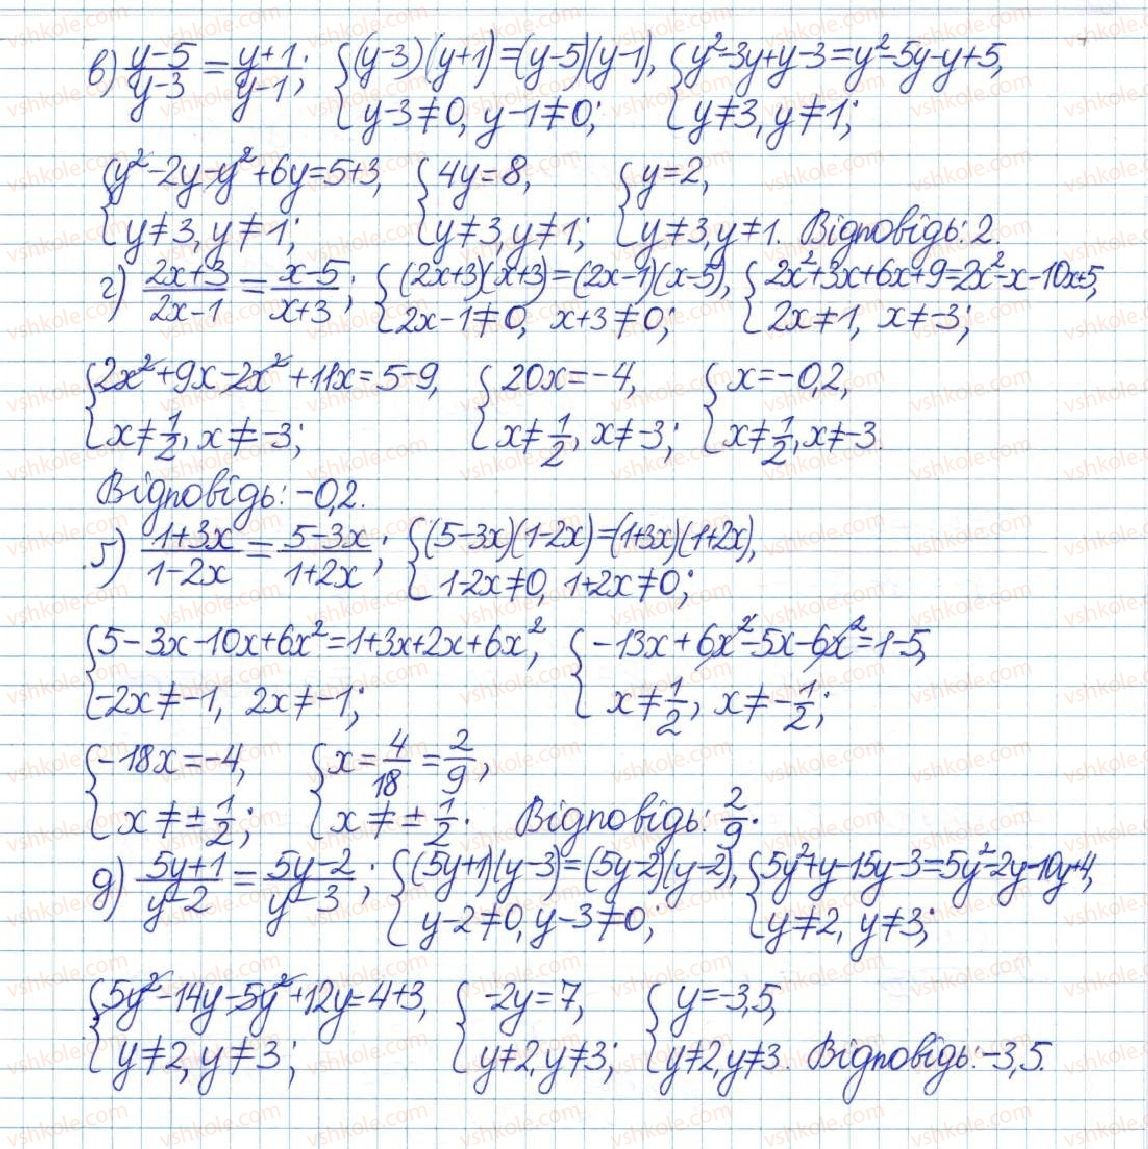 в) (y-5)/(y-3) = (y+1)/(y-1); {(y-3)(y+1)=(y-5)(y-1), y-3≠0, y-1≠0; {y²-3y+y-3=y²-5y-y+5, y≠3, y≠1;
{y²-2y-y²+6y=5+3, y≠3, y≠1; {4y=8, y≠3, y≠1; {y=2, y≠3, y≠1. Відповідь: 2.
г) (2x+3)/(2x-1) = (x-5)/(x+3); {(2x+3)(x+3)=(2x-1)(x-5), 2x-1≠0, x+3≠0; {2x²+3x+6x+9=2x²-x-10x+5, 2x≠1, x≠-3;
{2x²+9x-2x²+11x=5-9, x≠1/2, x≠-3; {20x=-4, x≠1/2, x≠-3; {x=-0,2, x≠1/2, x≠-3.
Відповідь: -0,2.
ґ) (1+3x)/(1-2x) = (5-3x)/(1+2x); {(5-3x)(1-2x)=(1+3x)(1+2x), 1-2x≠0, 1+2x≠0;
{5-3x-10x+6x²=1+3x+2x+6x², -2x≠-1, 2x≠-1; {-13x+6x²-5x-6x²=1-5, x≠1/2, x≠-1/2;
{-18x=-4, x≠±1/2; {x=4/18=2/9, x≠±1/2. Відповідь: 2/9.
д) (5y+1)/(y-2) = (5y-2)/(y-3); {(5y+1)(y-3)=(5y-2)(y-2), y-2≠0, y-3≠0; {5y²+y-15y-3=5y²-2y-10y+4, y≠2, y≠3;
{5y²-14y-5y²+12y=4+3, y≠2, y≠3; {-2y=7, y≠2, y≠3; {y=-3,5, y≠2, y≠3. Відповідь: -3,5.
vshkole.com